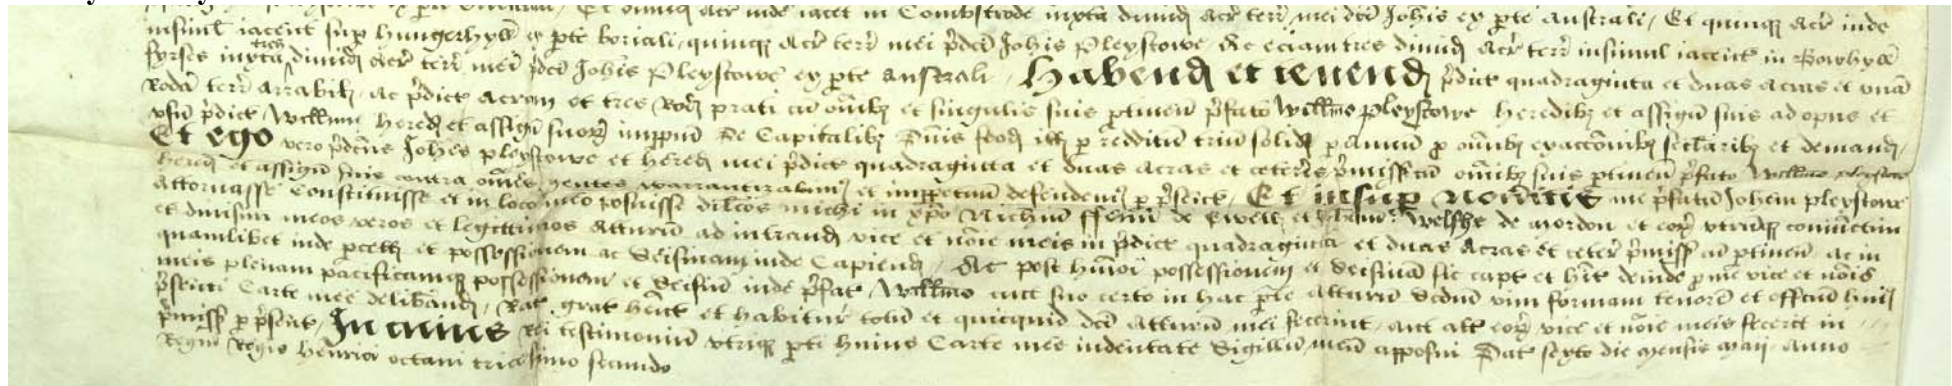 acr inde iacet in Combstrode iuxta dimid acr terr mei dci Johis ex pte australi / Et quinq acr inde
insimul iacent sup hungerhyll ex pte boriali, quinq acr terr mei pdci Johis Pleystowe, Ac eciam tres dimid acr terr insimul iacent in
fyrses iuxta tres dimid acr terr mei pdci Johis Pleystowe ex pte australi / Habend et tenend pdict quadraginta et duas acras et unā
Rodā terr arrabil, ac pdict acram et tres Rod prati cū omibz et singulis suis ptinen pfato Willmo Pleystowe heredibz et assign suis ad opus et
usū pdict Willmi hered et assign suorz imppm De Capitalibz Dnis feod ill p redditū triū solid p Annū p omibz exaccōnibz seclaribz et demand /
Et ego vero pdcus Johes pleystowe et hered mei pdict quadraginta et duas acras et ceter pmiss cū omibz suis ptinen pfato Willmo pleystowe
hered et assign suis contra omes gentes warrantizabim et imppetuū defendem p psent / Et insup Noveritis me pfatū Johem pleystowe
Attornasse constituisse et in loco meo posuisse dilcos michi in xpo Nichm ffenn de Ewell et Welshe de mordon et eorz utrūq coniūctim
et divisim meos veros et legittimos Atturn ad intrand vice et noie meis in pdict quadraginta et duas Acras et ceter pmiss cū ptinen ac in
quamlibet inde pcell et possessionem ac seisinam inde Capiend / Ac post hmoi possessionem et seisinā sic capt et hit deinde p me vice et nōie
meis plenam pacificamq possessionem et seisinā inde pfat Willmo aut suo certo in hac pte Atturn scdm vim formam tenorē et effcm hui
psentis Carte mee deliband / Rat grat hent et habitur totū et quicquid dci Atturn mei fecerint aut alt eorz vice et noie meis fecerit in
pmiss p psent / In cuius Rei testimoniū utriq pti huius Carte mee indentate Sigillū meū apposui Dat sexto die mensis Maij Anno
Regni Regis henrici octavi tricesimo secundo